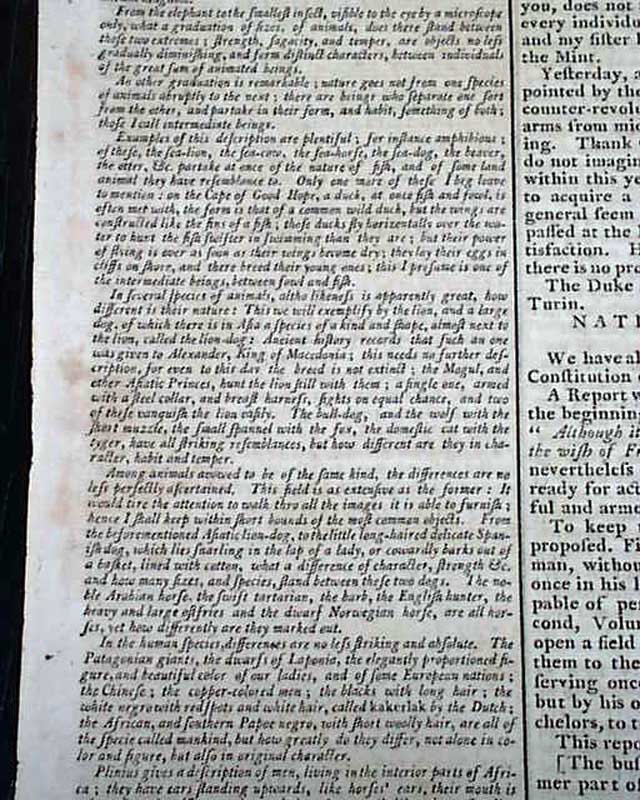 From the elephant to the ſmalleſt inſect, viſible to the eye by a microſcope
only, what a graduation of ſizes, of animals, does there ſtand between
theſe two extremes; ſtrength, ſagacity, and temper, are objects no leſs
gradually diminiſhing, and form diſtinct characters, between individuals
of the great ſum of animated beings.
An other graduation is remarkable; nature goes not from one ſpecies
of animals abruptly to the next; there are beings who ſeparate one ſort
from the other, and partake in their form, and habit, ſomething of both;
thoſe I call intermediate beings.
Examples of this deſcription are plentiful; for inſtance amphibious;
of theſe, the ſea-lion, the ſea-cow, the ſea-horſe, the ſea-dog, the beaver,
the otter, &c. partake at once of the nature of fiſh, and of ſome land
animal they have reſemblance to. Only one more of theſe I beg leave
to mention: on the Cape of Good Hope, a duck, at once fiſh and fowl, is
often met with, the form is that of a common wild duck, but the wings are
conſtructed like the fins of a fiſh; theſe ducks fly horizontally over the wa-
ter to hunt the fiſh ſwifter in ſwimming than they are; but their power
of flying is over as ſoon as their wings become dry; they lay their eggs in
cliffs on ſhore, and there breed their young ones; this I preſume is one of
the intermediate beings, between fowl and fiſh.
In ſeveral ſpecies of animals, altho likeneſs is apparently great, how
different is their nature: This we will exemplify by the lion, and a large
dog, of which there is in Aſia a ſpecies of a kind and ſhape, almoſt next to
the lion, called the lion-dog: Ancient hiſtory records that ſuch an one
was given to Alexander, King of Macedonia; this needs no further deſ-
cription, for even to this day the breed is not extinct; the Mogul, and
other Aſiatic Princes, hunt the lion ſtill with them; a ſingle one, armed
with a ſteel collar, and breaſt harneſs, fights on equal chance, and two
of theſe vanquiſh the lion eaſily. The bull-dog, and the wolf with the
ſhort muzzle, the ſmall ſpannel with the fox, the domeſtic cat with the
tyger, have all ſtriking reſemblances, but how different are they in cha-
racter, habit and temper.
Among animals avowed to be of the ſame kind, the differences are no
leſs perfectly aſcertained. This field is as extenſive as the former: It
would tire the attention to walk thro all the images it is able to furniſh;
hence I ſhall keep within ſhort bounds of the moſt common objects. From
the beforementioned Aſiatic lion-dog, to the little long-haired delicate Span-
iſh dog, which lies ſnarling in the lap of a lady, or cowardly barks out of
a baſket, lined with cotton, what a difference of character, ſtrength &c.
and how many ſizes, and ſpecies, ſtand between theſe two dogs. The no-
ble Arabian horſe, the ſwift tartarian, the barb, the Engliſh hunter, the
heavy and large eſtfries and the dwarf Norwegian horſe, are all hor-
ſes, yet how differently are they marked out.
In the human ſpecies, differences are no leſs ſtriking and abſolute. The
Patagonian giants, the dwarfs of Laponia, the elegantly proportioned fi-
gure, and beautiful color of our ladies, and of ſome European nations;
the Chineſe; the copper-colored men; the blacks with long hair; the
white negro with red ſpots and white hair, called kakerlak by the Dutch;
the African, and ſouthern Papoe negro, with ſhort woolly hair, are all of
the ſpecie called mankind, but how greatly do they differ, not alone in co-
lor and figure, but alſo in original character.
Plinius gives a deſcription of men, living in the interior parts of Afri-
ca; they have ears ſtanding upwards, like horſes' ears, their mouth is
you, does not
every individu
and my ſiſter
the Mint.
Yeſterday, a
pointed by the
counter-revol
arms from mi
ing. Thank
do not imagin
within this ye
to acquire a
general ſeem
paſſed at the
tisfaction. H
there is no pr
The Duke
Turin.
NAT
We have al
Conſtitution
A Report w
the beginnin
" Although it
the wiſh of Fr
nevertheleſs
ready for act
ful and arme
To keep
propoſed. Fi
man, withou
once in his
pable of pe
cond, Volun
open a field
them to the
ſerving once
but by his o
chelors, to t
This repo
[The buſ
mer part o